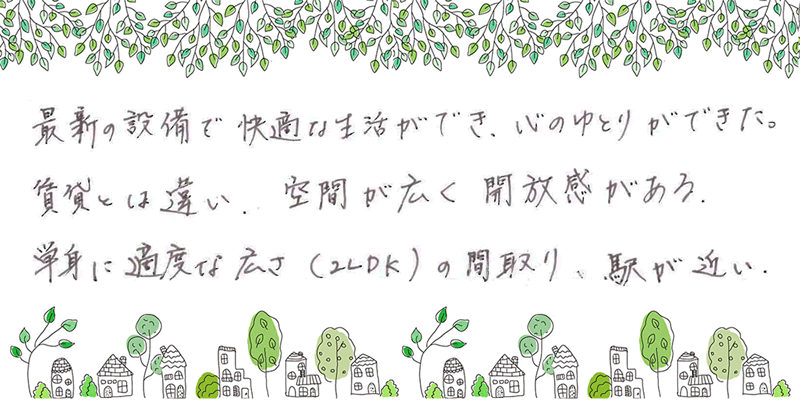 最新の設備で快適な生活ができ、心のゆとりができた。
賃貸とは違い、空間が広く開放感がある。
単身に適度な広さ(2LDK)の間取り、駅が近い.